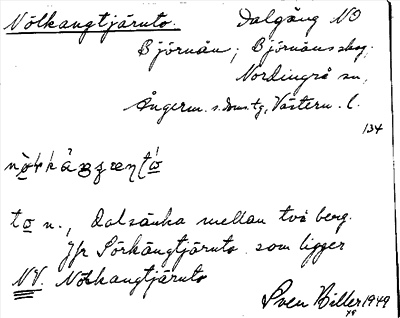 Nölkangtjärnto. Dalgång NO
Björnån, Björnåns skog,
Nordingrå sn,
Ångerm. s. dmstg, Västern. l.
134
to n., Dalsänka mellan två berg.
Jfr Sörkångtjärnto som ligger
NV. Nölkangtjärnto
Sven Biller 1949